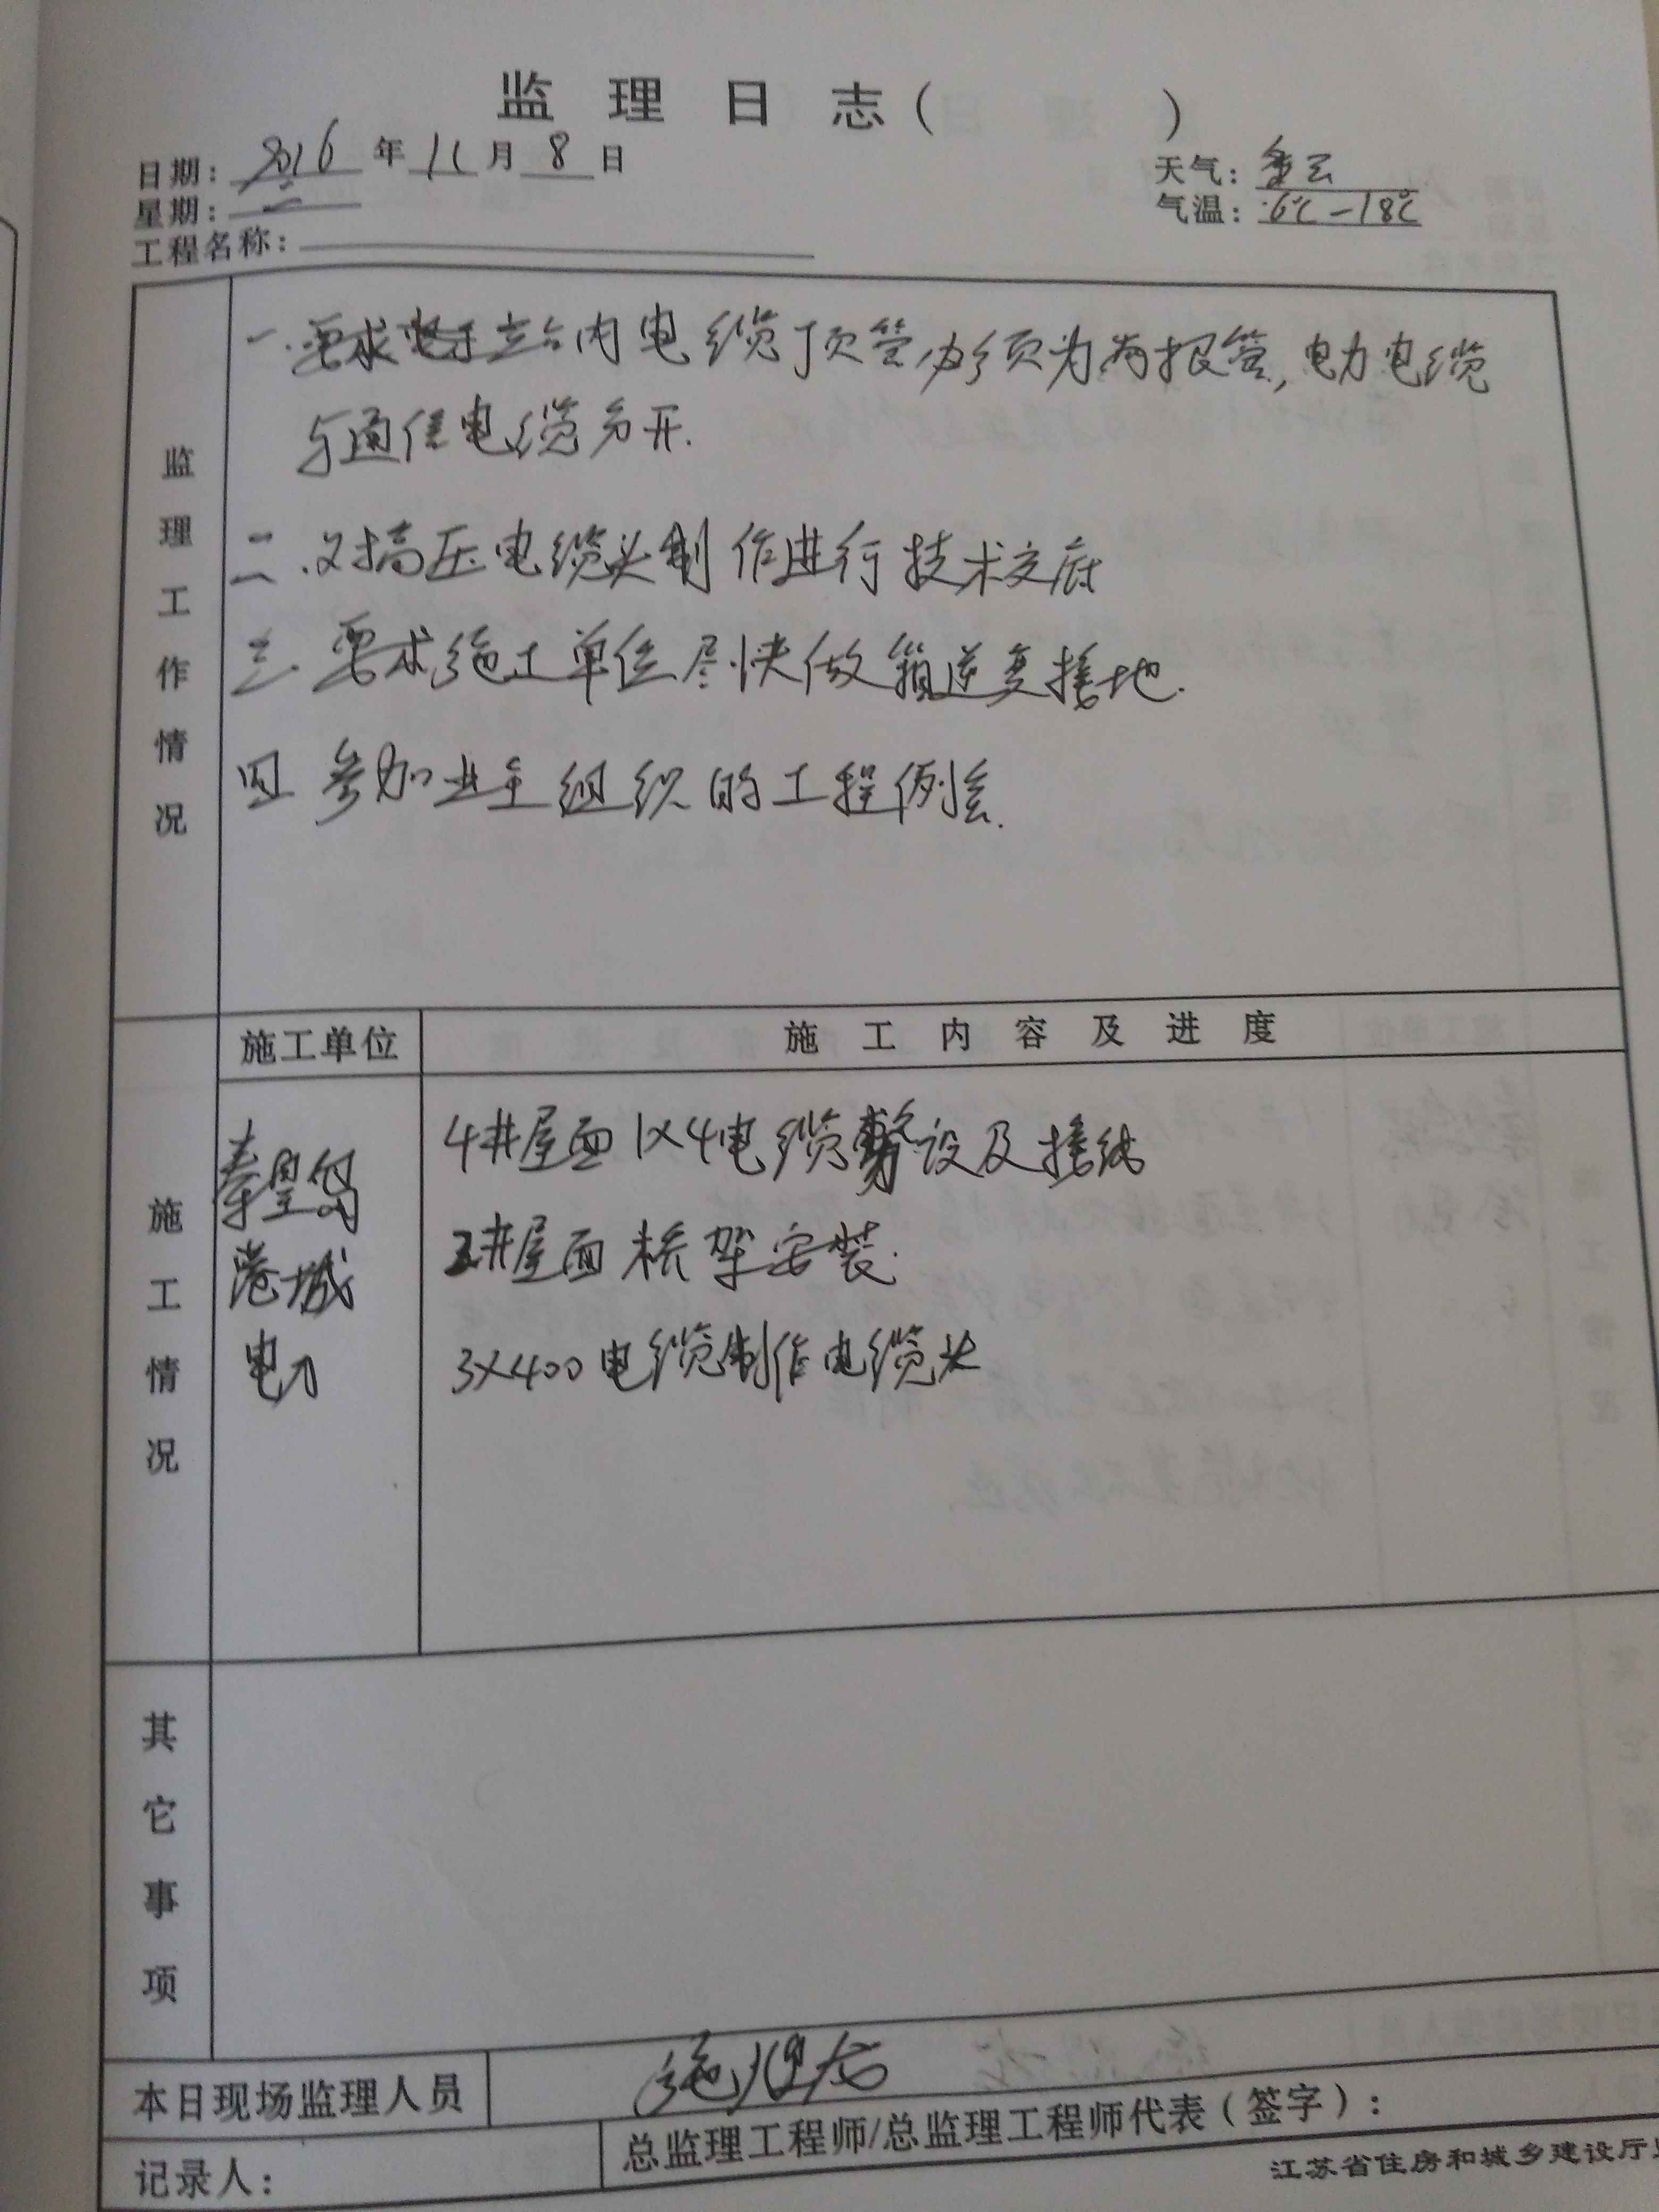 监理日志（ ）
日期：2016年11月8日
天气：多云
星期：二
气温：6℃-18℃
工程名称：
监理工作情况
一.要求 站内电缆顶管必须为 管,电力电缆
与通信电缆分开.
二.对高压电缆头制作进行技术交底
三.要求施工单位尽快做 接地.
四 参加业主组织的工程例会.
施工情况
施工单位
施工内容及进度
秦皇岛
港城
电力
4#屋面1×4电缆敷设及接线
3#屋面桥架安装.
3×400电缆制作电缆头
其它事项
本日现场监理人员
总监理工程师/总监理工程师代表（签字）：
记录人：
江苏省住房和城乡建设厅